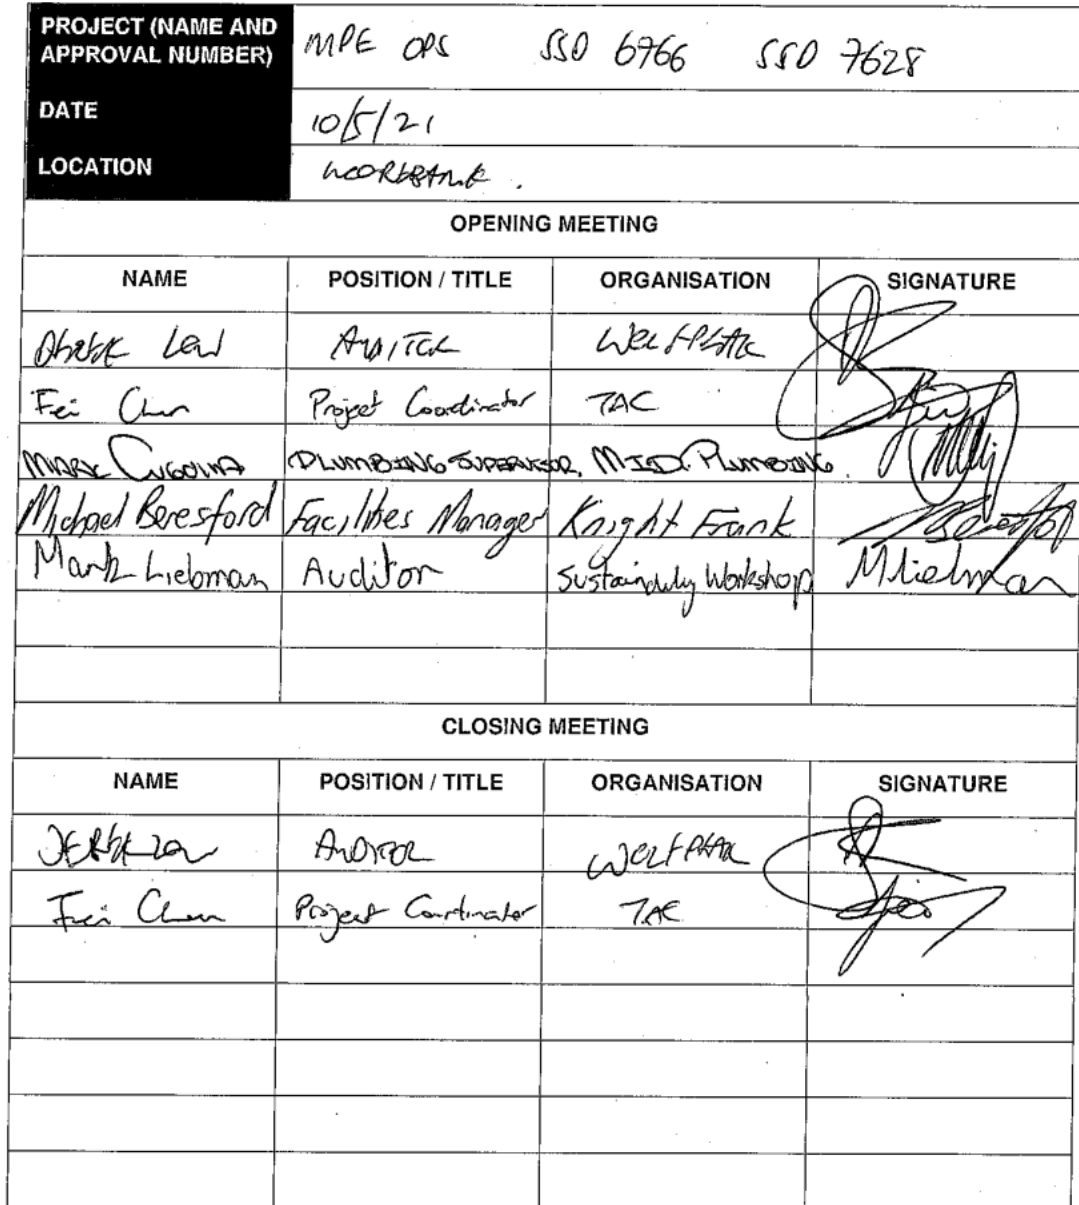 PROJECT (NAME AND APPROVAL NUMBER) MPE OPS SSD 6766 SSD 7628
DATE 10/5/21
LOCATION
OPENING MEETING
NAME POSITION / TITLE ORGANISATION SIGNATURE
Derek Low Auditor
Fei Chen Project Coordinator TAC
MARK PLUMBING SUPERVISOR, M.I.D. PLUMBING
Michael Beresford Facilities Manager Knight Frank
Mark Liebman Auditor Sustainability Workshop MLiebman
CLOSING MEETING
NAME POSITION / TITLE ORGANISATION SIGNATURE
DEREK LOW AUDITOR
Fei Chen Project Coordinator TAC